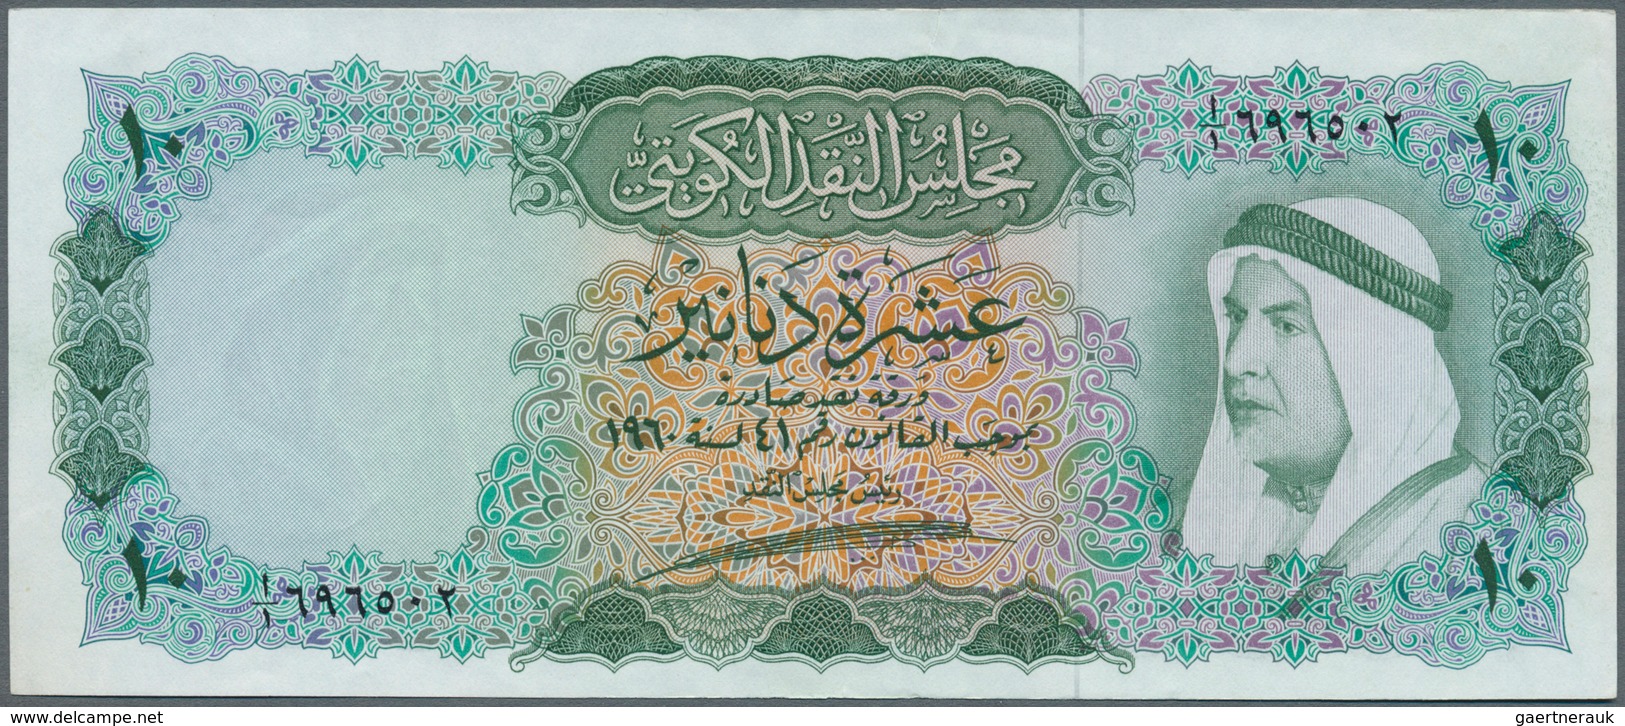 مجلس النقد الكويتي
١/١ ٦٩٦٥٠٢
١٠
١٠
عشرة دنانير
ورقة نقد صادرة
بموجب القانون رقم ٤١ لسنة ١٩٦٠
رئيس مجلس النقد
١/١ ٦٩٦٥٠٢
١٠
١٠
www.delcampe.net
gaertnerauk